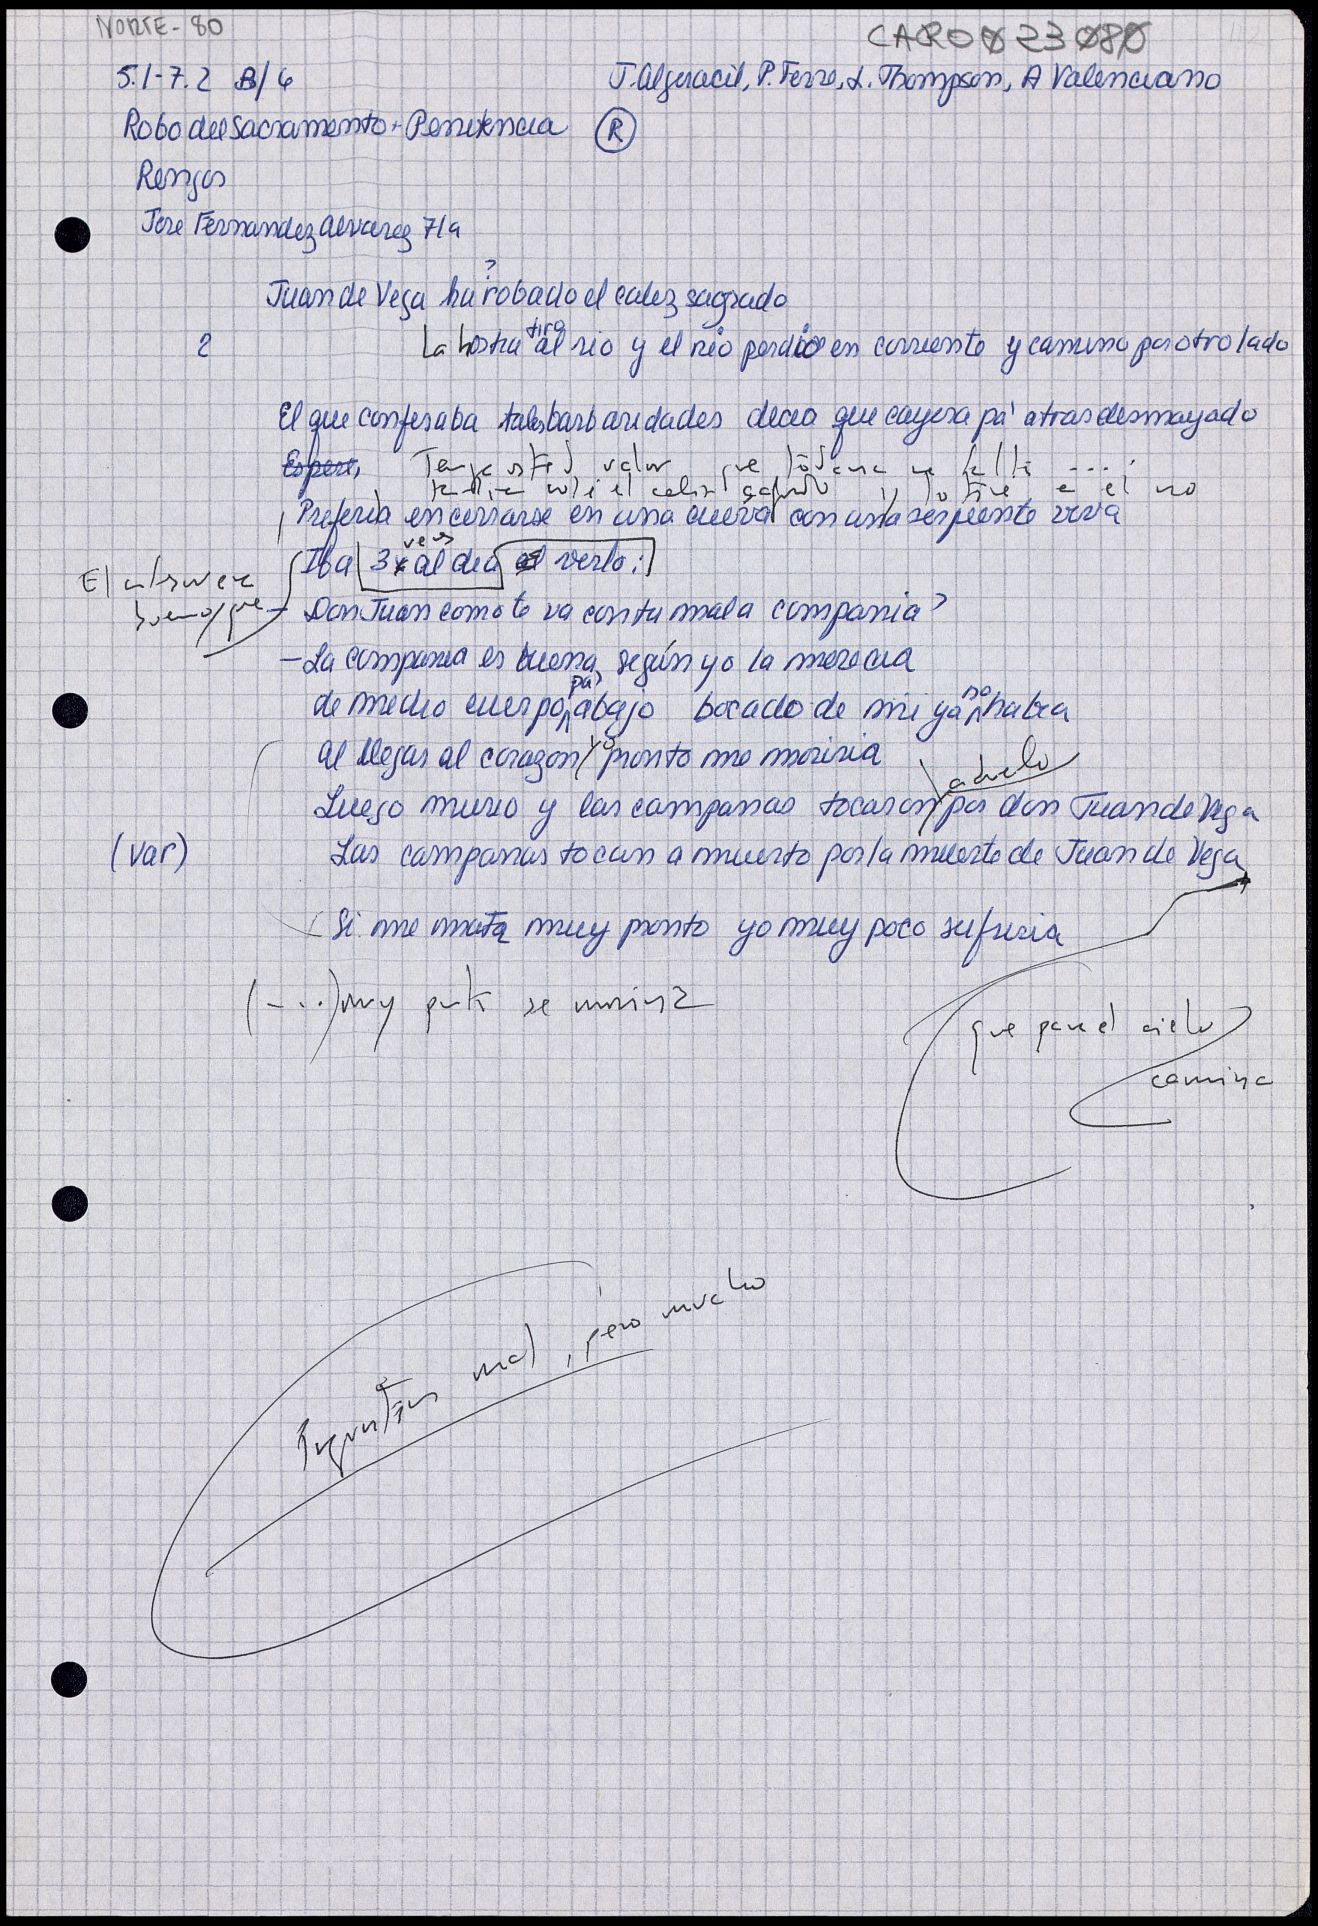 NORTE - 80
CARO 0 23 080
5.1-7.2 B/6
J. Algeracil, P. Ferre, L. Thompson, A Valenciano
Robo del Sacramento + Penitencia (R)
Rengos
Jose Fernandez Alvarez 71a
?
Juan de Vega ha robado el caliz sagrado
2 La hostia tiro al rio y el rio perdio en corriente y camino por otro lado
El que confesaba tales barbaridades decia que cayera pa' atras desmayado
Espere, Tenga usted valor que todavia me falta ....:
también robé el caliz sagrado y lo tire a el rio
Preferia encerrarse en una cueva con una serpiente viva
Iba 3 veces al dia a verlo:
El
bueno, que
- Don Juan como te va con tu mala compañia?
- La compañia es buena, según yo la merecia
de medio cuerpo pa, abajo bocado de mi ya no habia
al llegar al corazon, yo pronto me moriria
Luego murio y las campanas tocaron a duelo por don Juan de Vega
(var) Las campanas tocan a muerto por la muerte de Juan de Vega
Si me mata muy pronto yo muy poco sufriria
(-...) muy pronto se moriria
que para el cielo
camina
mal, pero mucho